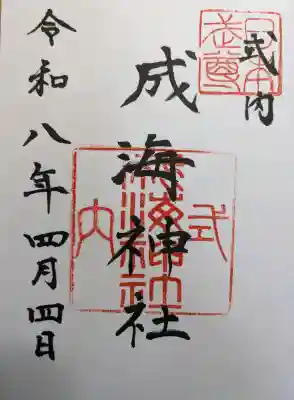 式内
成海神社
令和八年四月四日
式内
成海神社